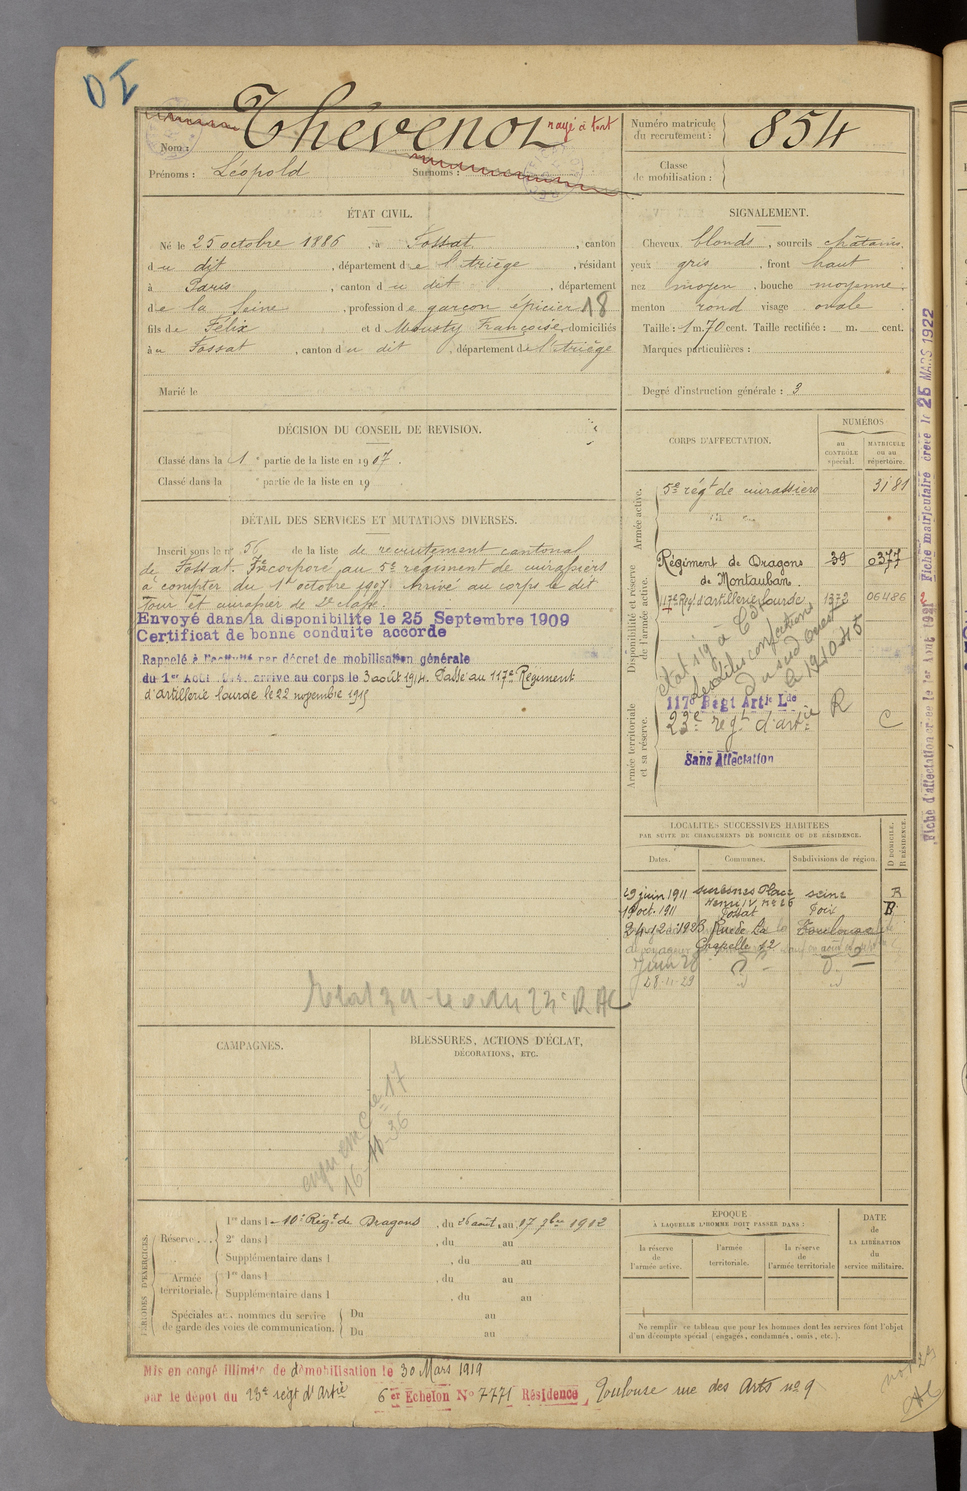 Nom :
Thévenot
rayé à tort
Prénoms : Léopold
Surnoms :
Numéro matricule du recrutement : 854
Classe de mobilisation :
ÉTAT CIVIL.
Né le 25 octobre 1886 , à Fossat , canton
du dit , département de l'Ariège , résidant
à Paris , canton du dit , département
de la Seine , profession de garçon épicier 18
fils de Félix et d Mousty Françoise, domiciliés
à u Fossat , canton du dit , département de l'Ariège
Marié le
SIGNALEMENT.
Cheveux blonds , sourcils châtains
yeux gris , front haut
nez moyen , bouche moyenne
menton rond visage ovale
Taille : 1 m. 70 cent. Taille rectifiée : m. cent.
Marques particulières :
Degré d'instruction générale : 3
DÉCISION DU CONSEIL DE REVISION.
Classé dans la 1e partie de la liste en 1907.
Classé dans la e partie de la liste en 19
DÉTAIL DES SERVICES ET MUTATIONS DIVERSES.
Inscrit sous le no 56 de la liste de recrutement cantonal
de Fossat. Incorporé au 5e régiment de cuirassiers
à compter du 1er octobre 1907 Arrivé au corps le dit
jour et cuirassier de 2e classe.
Envoyé dans la disponibilité le 25 Septembre 1909
Certificat de bonne conduite accordé
Rappelé à l'activité par décret de mobilisation générale
du 1er Août 1914. arrivé au corps le 3 août 1914. Passé au 117e Régiment
d'artillerie lourde le 22 novembre 1915
CORPS D'AFFECTATION.
NUMÉROS
au CONTRÔLE spécial.
MATRICULE ou au répertoire.
Armée active.
5e régt de cuirassiers 3181
Disponibilité et réserve de l'armée active.
Régiment de Dragons 39 0377
de Montauban.
117e Reg. d'artillerie lourde 1373 06486
117e Régt Artie Lde
23e regt d'artie R C
Sans Affectation
Armée territoriale et sa réserve.
Fiche d'affectation
Fiche matriculaire créée le 25 MARS 1922
LOCALITÉS SUCCESSIVES HABITÉES
PAR SUITE DE CHANGEMENTS DE DOMICILE OU DE RÉSIDENCE.
Dates. Communes. Subdivisions de région. D DOMICILE. R RÉSIDENCE.
29 juin 1911 Suresnes Place Seine R
Henri IV no 26
19 oct. 1911 Fossat Foix
Rue de la Toulouse
Chapelle 12
28-11-29
CAMPAGNES.
BLESSURES, ACTIONS D'ÉCLAT,
DÉCORATIONS, ETC.
16-11-36
PÉRIODES D'EXERCICES.
Réserve... 1re dans le 10e Régt de Dragons , du 26 août au 17 7bre 1912
2e dans l , du au
Supplémentaire dans l , du au
Armée territoriale. 1re dans l , du au
Supplémentaire dans l , du au
Spéciales aux hommes du service Du au
de garde des voies de communication. Du au
ÉPOQUE
À LAQUELLE L'HOMME DOIT PASSER DANS :
la réserve de l'armée active.
l'armée territoriale.
la réserve de l'armée territoriale
DATE de LA LIBÉRATION du service militaire.
Ne remplir ce tableau que pour les hommes dont les services font l'objet
d'un décompte spécial (engagés, condamnés, omis, etc.).
Mis en congé illimité de démobilisation le 30 Mars 1919
par le dépôt du 23e regt d'Artie 6er Echelon No 7771 Résidence, Toulouse rue des Arts no 9